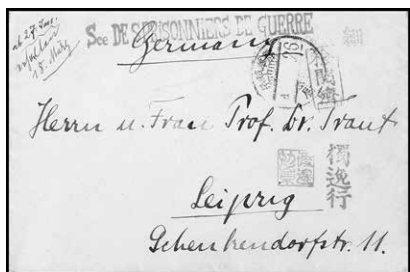 ab 27. Jan.
15. März
Sce DES PRISONNIERS DE GUERRE
Germany
Herrn u. Frau Prof. Dr. Traut
獨逸行
Leipzig
Schenkendorfstr. 11.